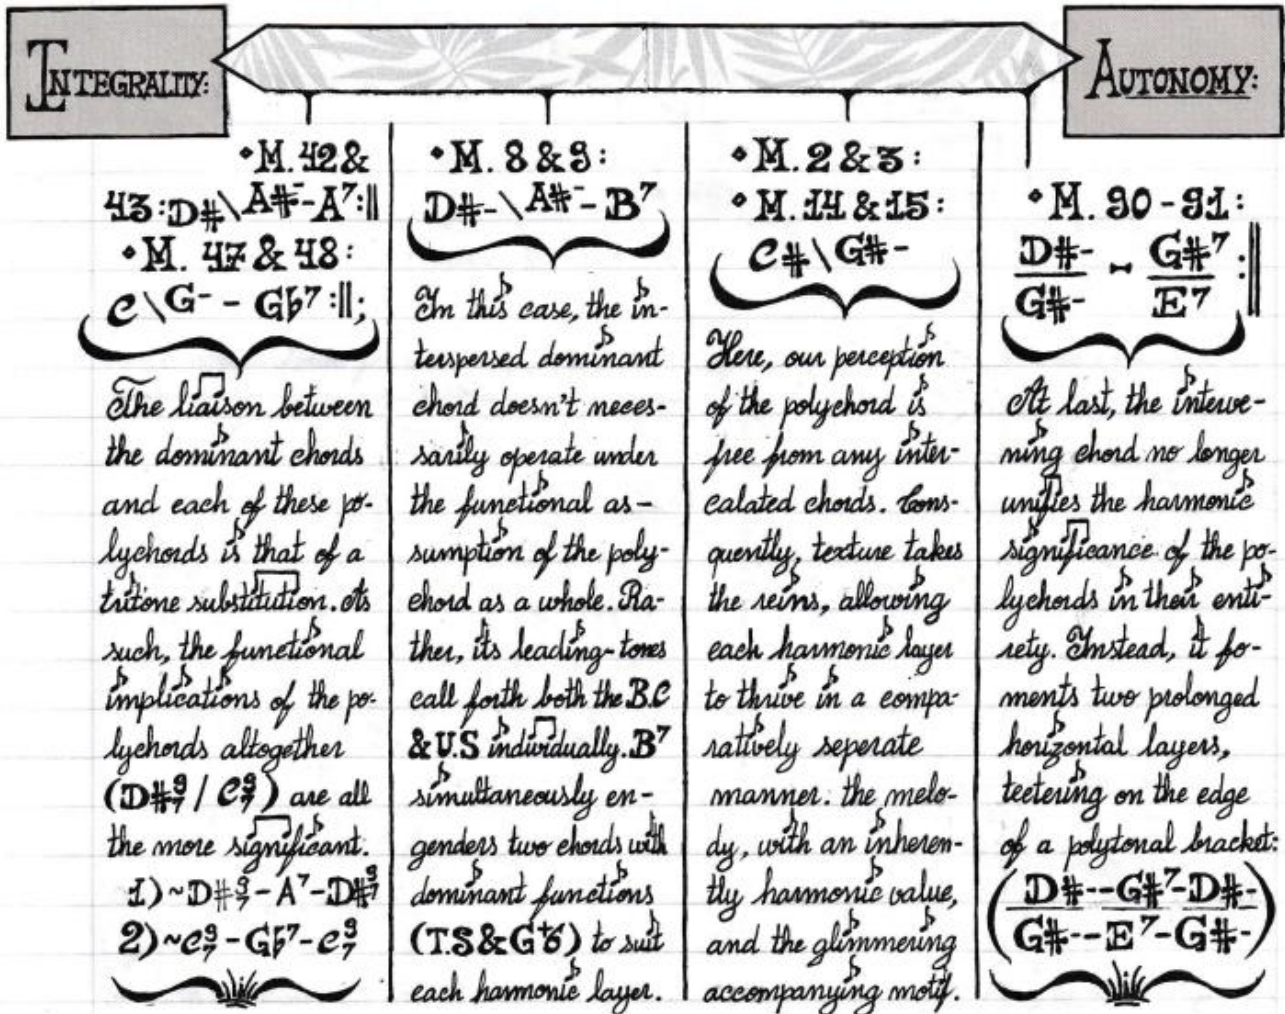 INTEGRALITY:
AUTONOMY:
• M. 42 &
43: D#\A#- - A7 :||
• M. 47 & 48:
C\G- - Gb7 :||;
The liaison between
the dominant chords
and each of these po-
lychords is that of a
tritone substitution. As
such, the functional
implications of the po-
lychords altogether
(D#9/7 / C9/7) are all
the more significant.
1) ~ D#9/7 - A7 - D#9/7
2) ~ C9/7 - Gb7 - C9/7
• M. 8 & 9:
D#- \ A#- - B7
In this case, the in-
terspersed dominant
chord doesn't neces-
sarily operate under
the functional as-
sumption of the poly-
chord as a whole. Ra-
ther, its leading-tones
call forth both the B.C
& U.S individually. B7
simultaneously en-
genders two chords with
dominant functions
(T.S & G+6) to suit
each harmonic layer.
• M. 2 & 3:
• M. 14 & 15:
C# \ G#-
Here, our perception
of the polychord is
free from any inter-
calated chords. Cons-
quently, texture takes
the reins, allowing
each harmonic layer
to thrive in a compa-
ratively seperate
manner: the melo-
dy, with an inheren-
tly harmonic value,
and the glimmering
accompanying motif.
• M. 90 - 91:
D#- - G#7 :||
G#- E7
At last, the interve-
ning chord no longer
unifies the harmonic
significance of the po-
lychords in their enti-
rety. Instead, it fo-
ments two prolonged
horizontal layers,
teetering on the edge
of a polytonal bracket:
(D#- - G#7 - D#-
G#- - E7 - G#-)